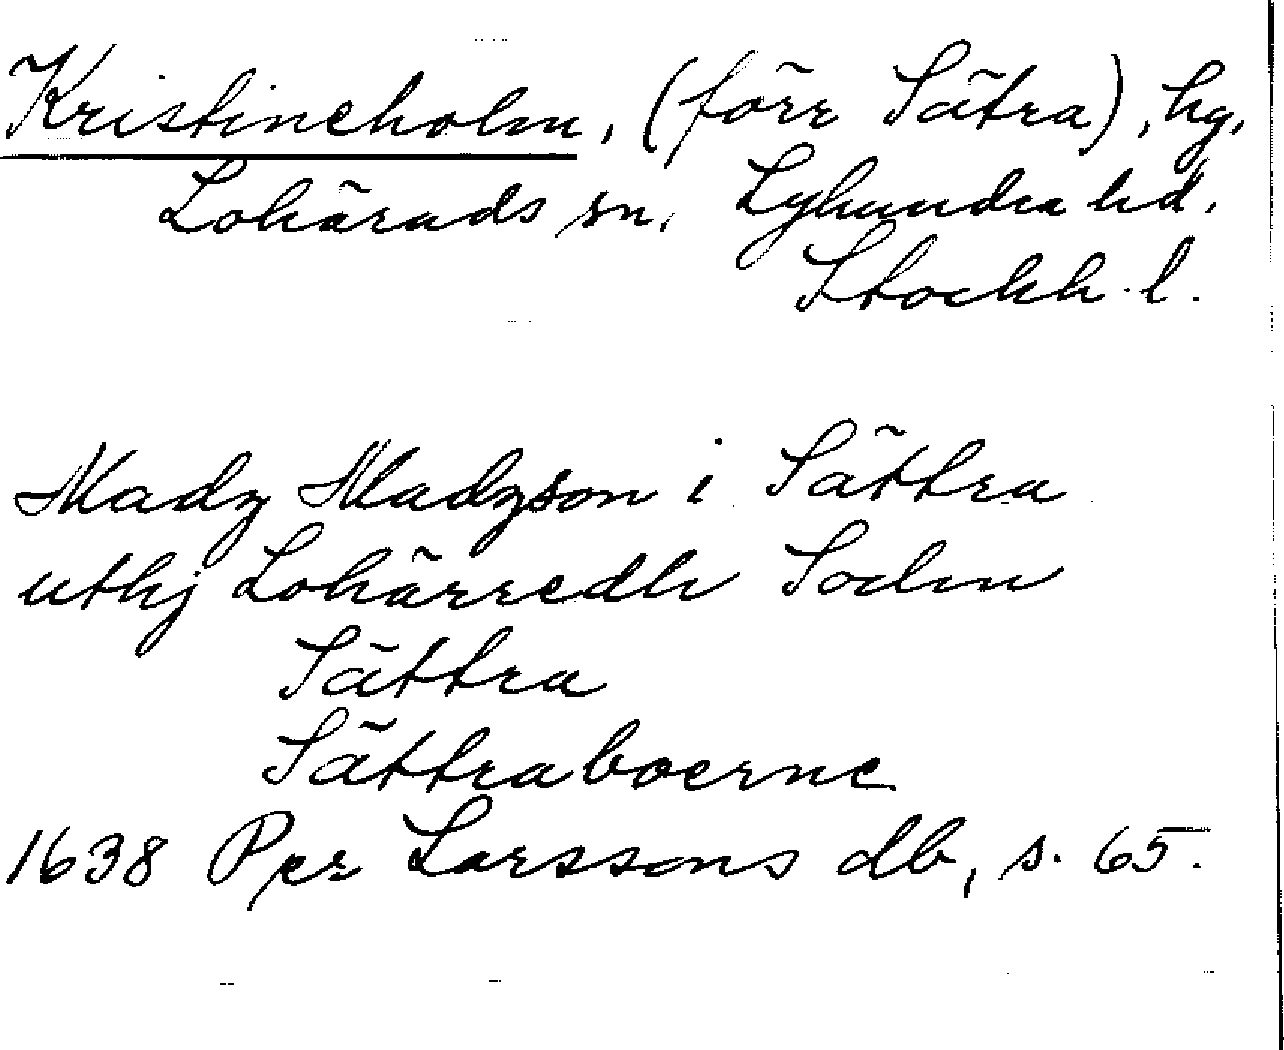 Kristineholm, (förr Sätra), hg.
Lohärads sn. Lyhundra hd.
Stockh. l.
Madz Madzson i Sättra
uthj Lohärredh Sochn
Sättra
Sättraboerne
1638 Per Larssons db, s. 65.